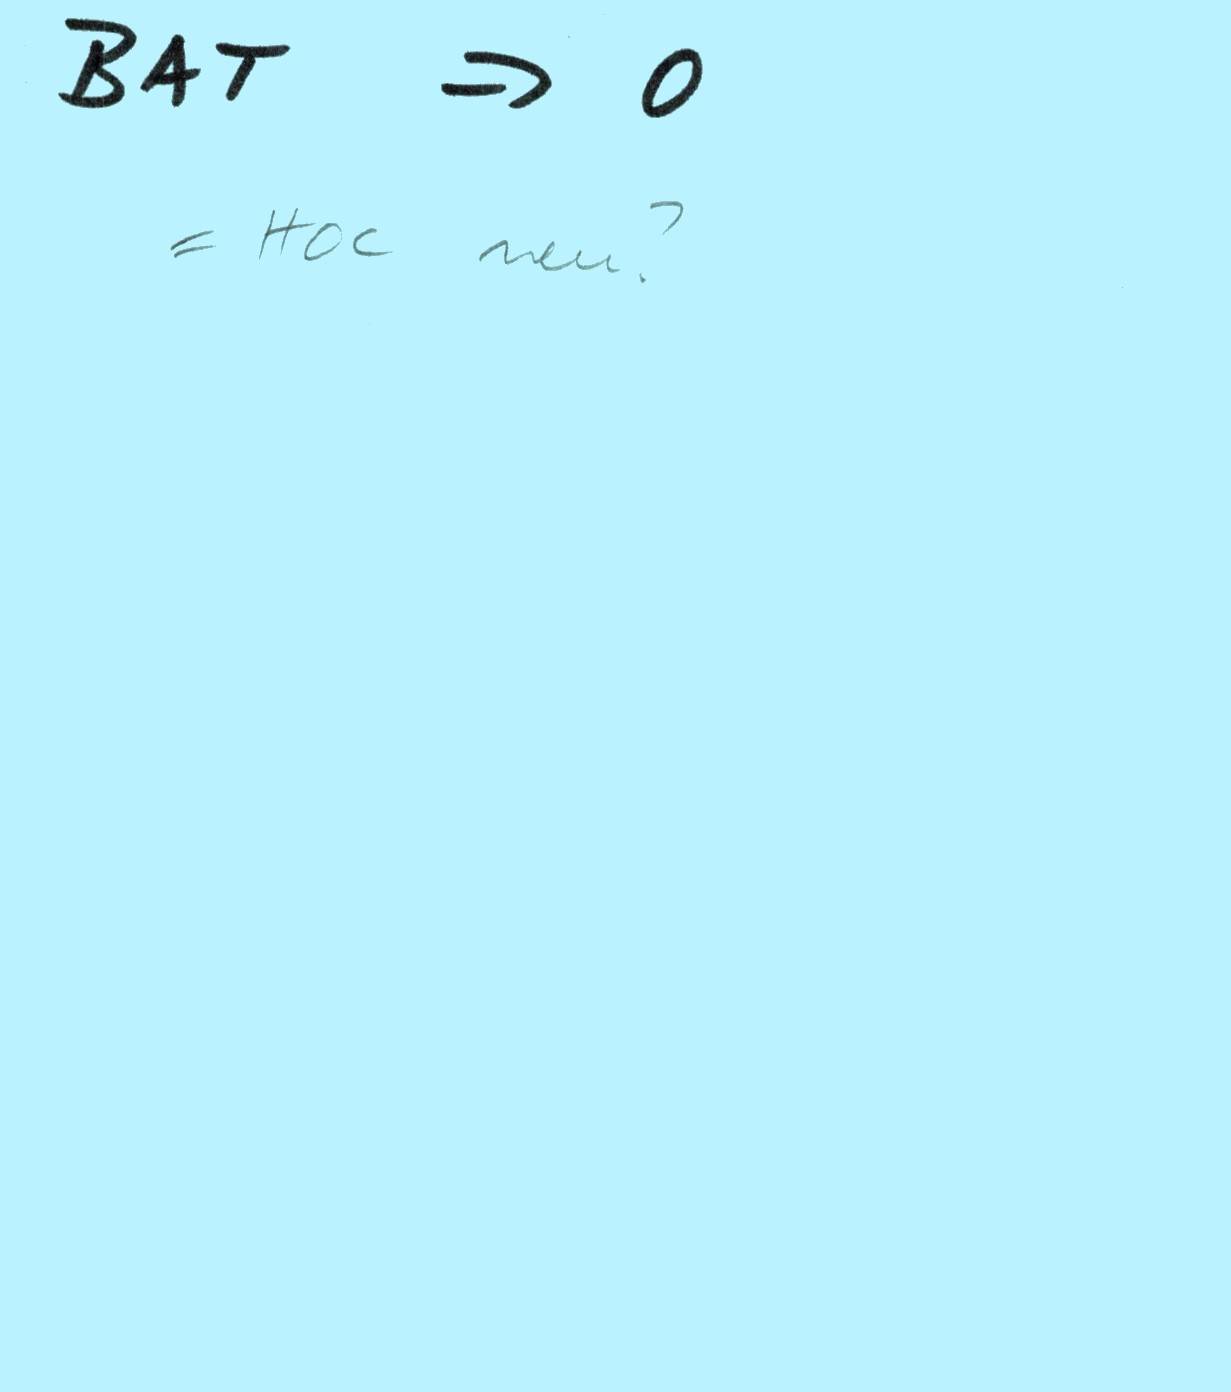 BAT => 0
= HOC neu?